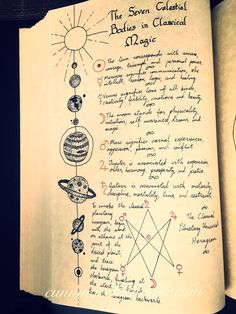 The Seven Celestial
Bodies in Classical
Magic
☉ The Sun corresponds with
courage, triumph, and personal power
☿ Mercury signifies communication, the
intellect,
♀ Venus signifies love of all kinds,
creativity, fertility, emotions and beauty
☽ The moon stands for physicality,
intuition, self awareness, dreams and
magic
♂ Mars signifies carnal experiences,
aggression, passion, and conflict
♃ Jupiter is associated with expansion
order, harmony, prosperity, and justice
♄ Saturn is associated with maturity,
discipline, mortality, time, and restraint
To invoke the classical
planetary
hexagram, begin
with the wand
or athame at the
point of the
desired planet,
and trace
the hexagram
clockwise, finishing at
the start. To banish
trace the hexagram backwards.
The Classical
Planetary Universal
Hexagram